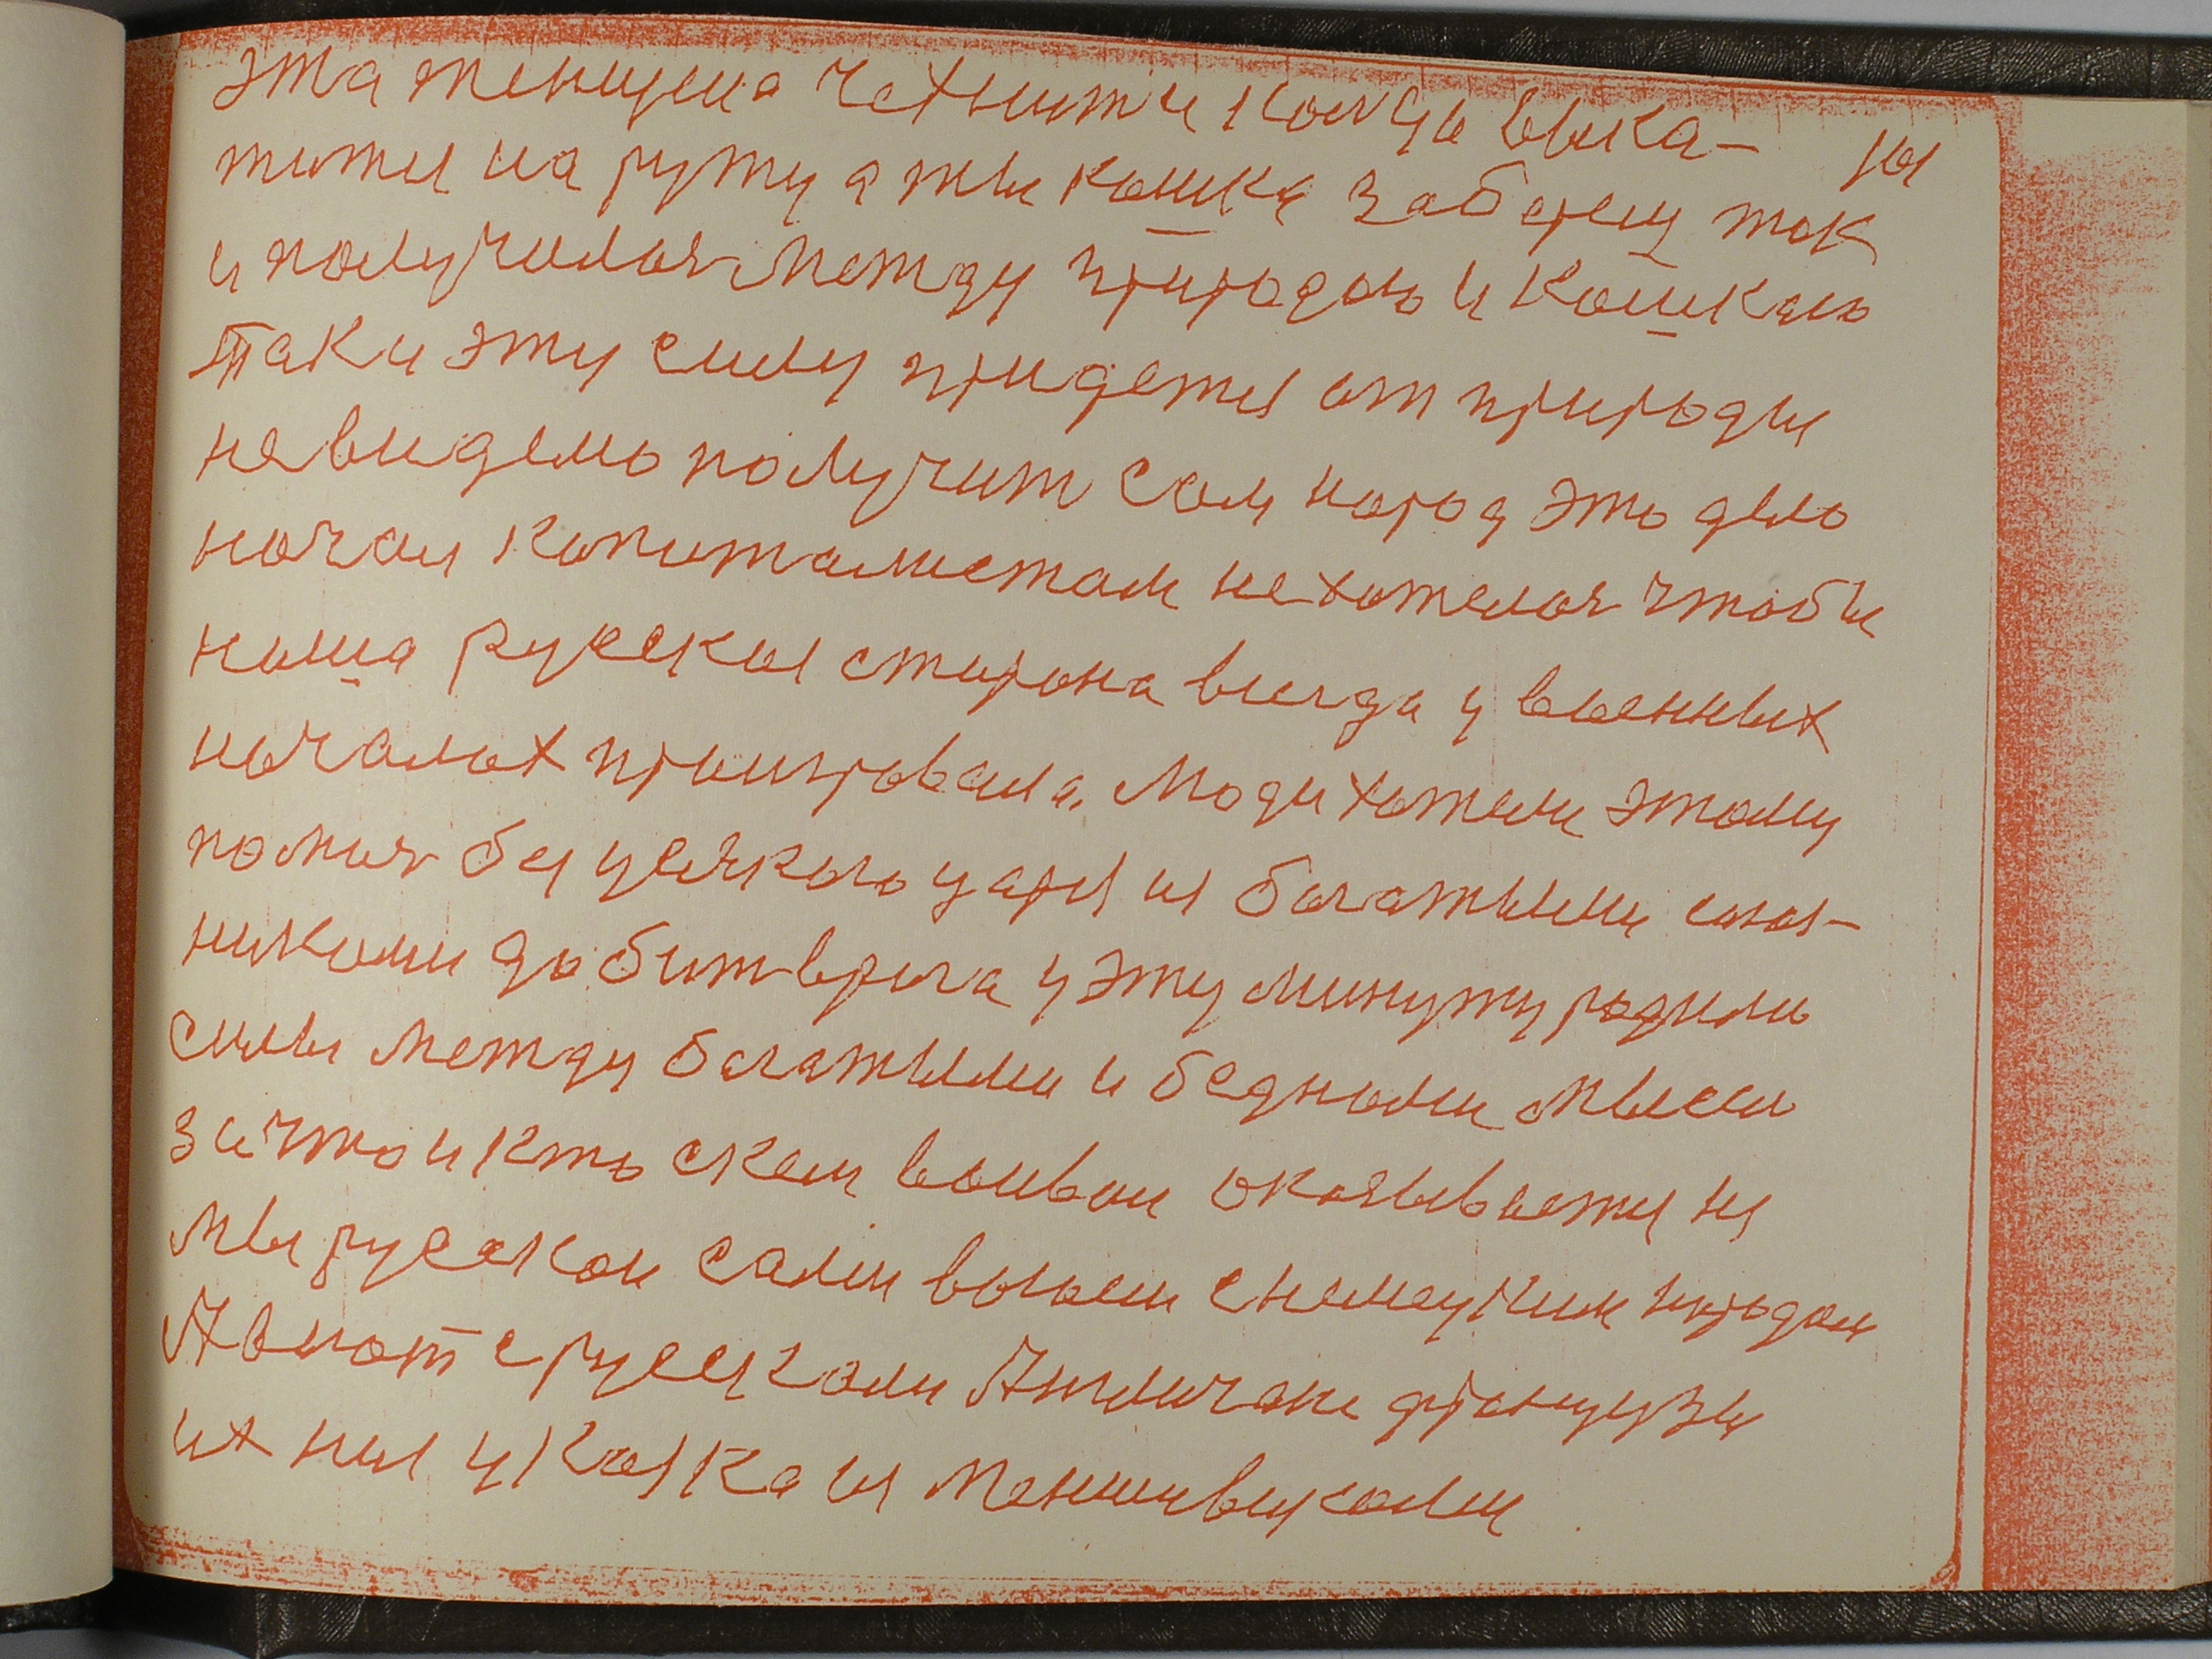 эта женщена чехнит и когда выка-
титя на руту а ты кошка заберещ так
и получилося между природою и кошкаю
так и эту силу придетя от природы
невидемо получит сам народ это дело
начал капиталистам нехотелося чтобы
наша русская старона всигда у военных
началах проигровала. люди хотели этому
помоч без усякого царя из богатыми союз-
никоми добит врага у эту минуту родило
силы между богатыми и бедноми мысел
за что и кто скем воивал оказываетя не
мы русскои сами воюем снемецким народом
А вмюст с русскоми Англичане французы
их них указка из меншевикоми